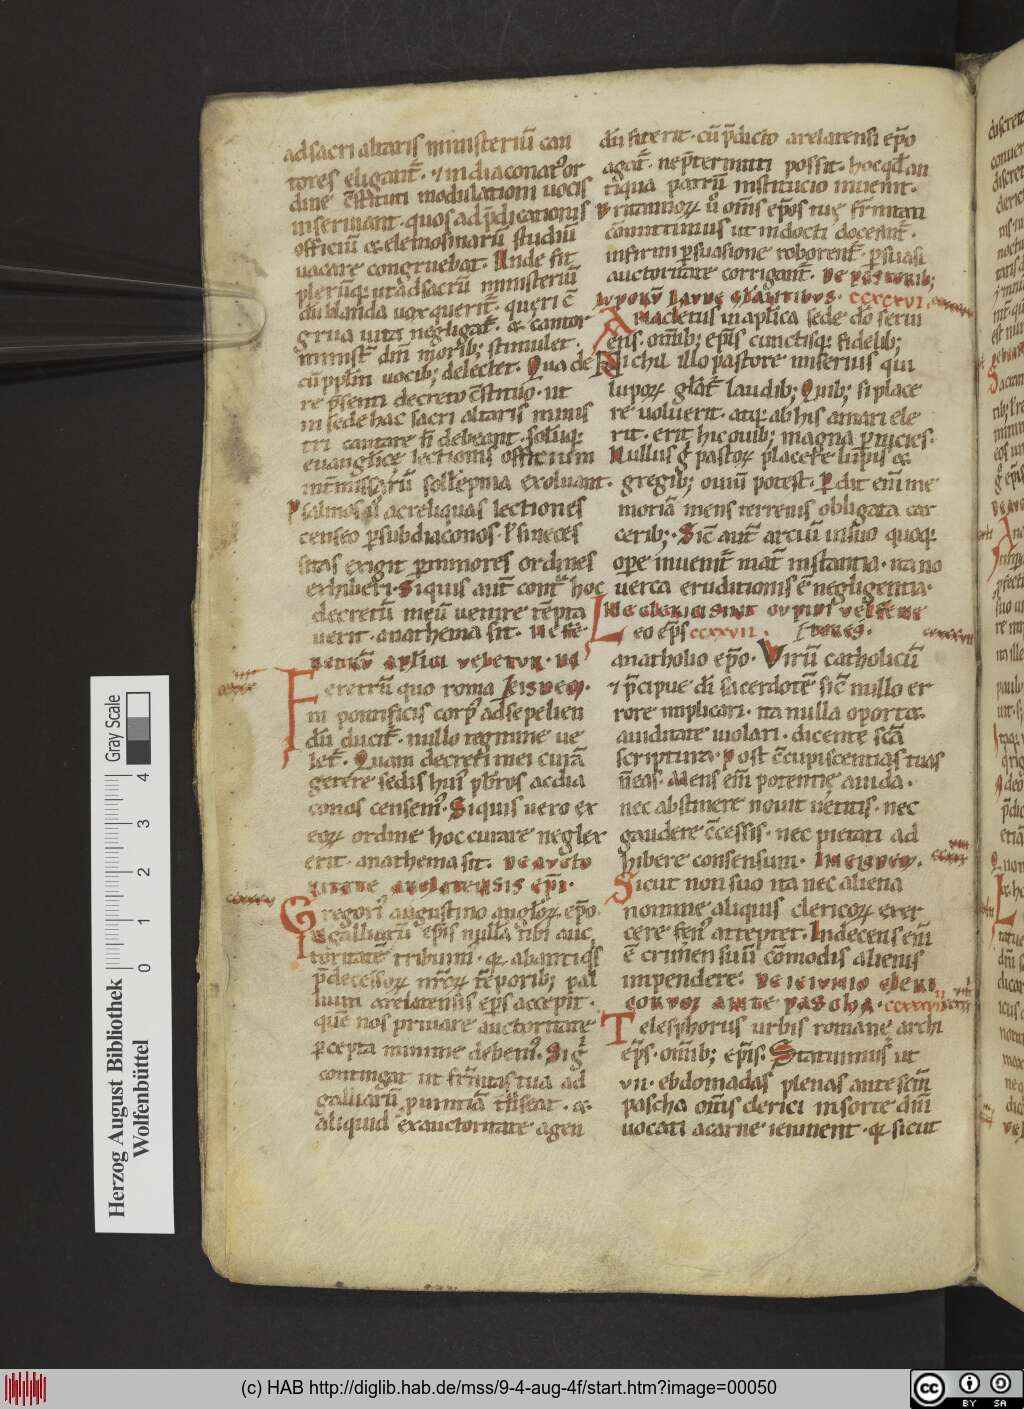 ad sacri altaris ministeriū can
tores eligant̄. ⁊ in diaconat᷒ or
dine c̄stituti modulationi uocis
inseruiant. quos ad p̄dicationis
officiū ⁊ elemosinarū studiū
uacare congruebat. Unde fit
plerūq; ut ad sacrū ministeriū
dū blanda uox querit̄. queri c̄
grua uita negligat̄. ⁊ cantor
minist̄ dm̄ morib; stimulet.
cū pp̄lm̄ uocib; delectet. Qua de
re p̄senti decreto c̄stituo. ut
in sede hac sacri altaris minis
tri cantare n̄ debeant. soluq;
euanglice lectionis officium
int̄ missarū sollempnia exoluant.
Psalmos ū ac reliquas lectiones
censeo p̄ subdiaconos. ł si neces
sitas exigit p̄ minores ordines
exhiberi. Siquis aut̄ cont᷑ hoc
decretū meū uenire te̅pta
uerit. anathema sit.
Feretrū quo roma
ni pontificis corp᷒ ad sepelien
dū ducit̄. nullo tegmine ue
let̄. Quam decreti mei curā
gerere sedis hui᷒ pb̄ros ac dia
conos censem᷒. Siquis uero ex
eoꝝ ordine hoc curare neglex
erit. anathema sit.
Gregori᷒ augustino angloꝝ. ep̄o.
In galliarū ep̄is nullā tibi auc
toritatē tribuim᷒. q̄ ab antiq̄s
p̄decessoꝝ nr̄oꝝ te̅porib; pal
lium arelatensis ep̄s accepit.
quē nos priuare auctoritate
p̄cepta minime debem᷒. Sig᷑
contingat ut fr̄nitas tua ad
galliarū puintiā t̄nseat. ⁊
aliquid ex auctoritate agen
dū fuerit. cū p̄dicto arelatensi ep̄o
agat̄. ne p̄termitti possit. hoc qd̄ an
tiqua patrū institucio inuenit.
Britannioꝝ ū om̄s ep̄os tuę fr̄nitati
cōmittimus ut indocti doceant̄.
infirmi p̄suasione roborent̄. p̄uersi
auctoritate corrigant̄. De pastorib;
lupoꝝ laude gł̄antibus. ccxxxvi.
Anacletus in aplica sede dō serui
ens. omib; ep̄is cunctisq; fidelib;
Nichil illo pastore miserius qui
lupoꝝ gł̄at̄ laudib; Quib; si place
re uoluerit. atq; ab his amari ele
rit. erit hic ouib; magna p̄nicies.
Nullus g᷑ pastoꝝ placere lupis ⁊
gregib; ouiū potest. P̄dit eni̅ me
moriā mens terrenis obligata car
cerib;. Sic̄ aut̄ artiū in suo quoq;
ope inuenit̄ mat̄ instantia. ita no
uerca eruditionis ē negligentia.
Leo ep̄s ccxxxvii.
anatholio ep̄o. Virū catholicū
⁊ p̄cipue dī sacerdotē sic̄ nullo er
rore implicari. ita nulla oportet
auiditate uiolari. dicente scā
scriptura. Post c̄cupiscentias tuas
n̄ eas. Mens eni̅ potentie auida.
nec abstinere nouit uetitis. nec
gaudere c̄cessis. nec pietati ad
hibere consensum.
Sicut non suo ita nec alieno
nomine aliquis clericoꝝ exer
cere fen᷒ attemptet. Indecens eni̅
ē crimen suū cōmodis alienis
impendere. De ieiunio cleri
coꝝ ante pascha.
Telesphorus urbis romanę archi
ep̄s. omib; ep̄is. Statuimus ut
vii. ebdomadas plenas ante scm̄
pascha om̄s clerici in sorte dm̄
uocati a carne ieiunent. q̄ sicut
Gray Scale
0 1 2 3 4
Herzog August Bibliothek
Wolfenbüttel
(c) HAB http://diglib.hab.de/mss/9-4-aug-4f/start.htm?image=00050
cc BY SA